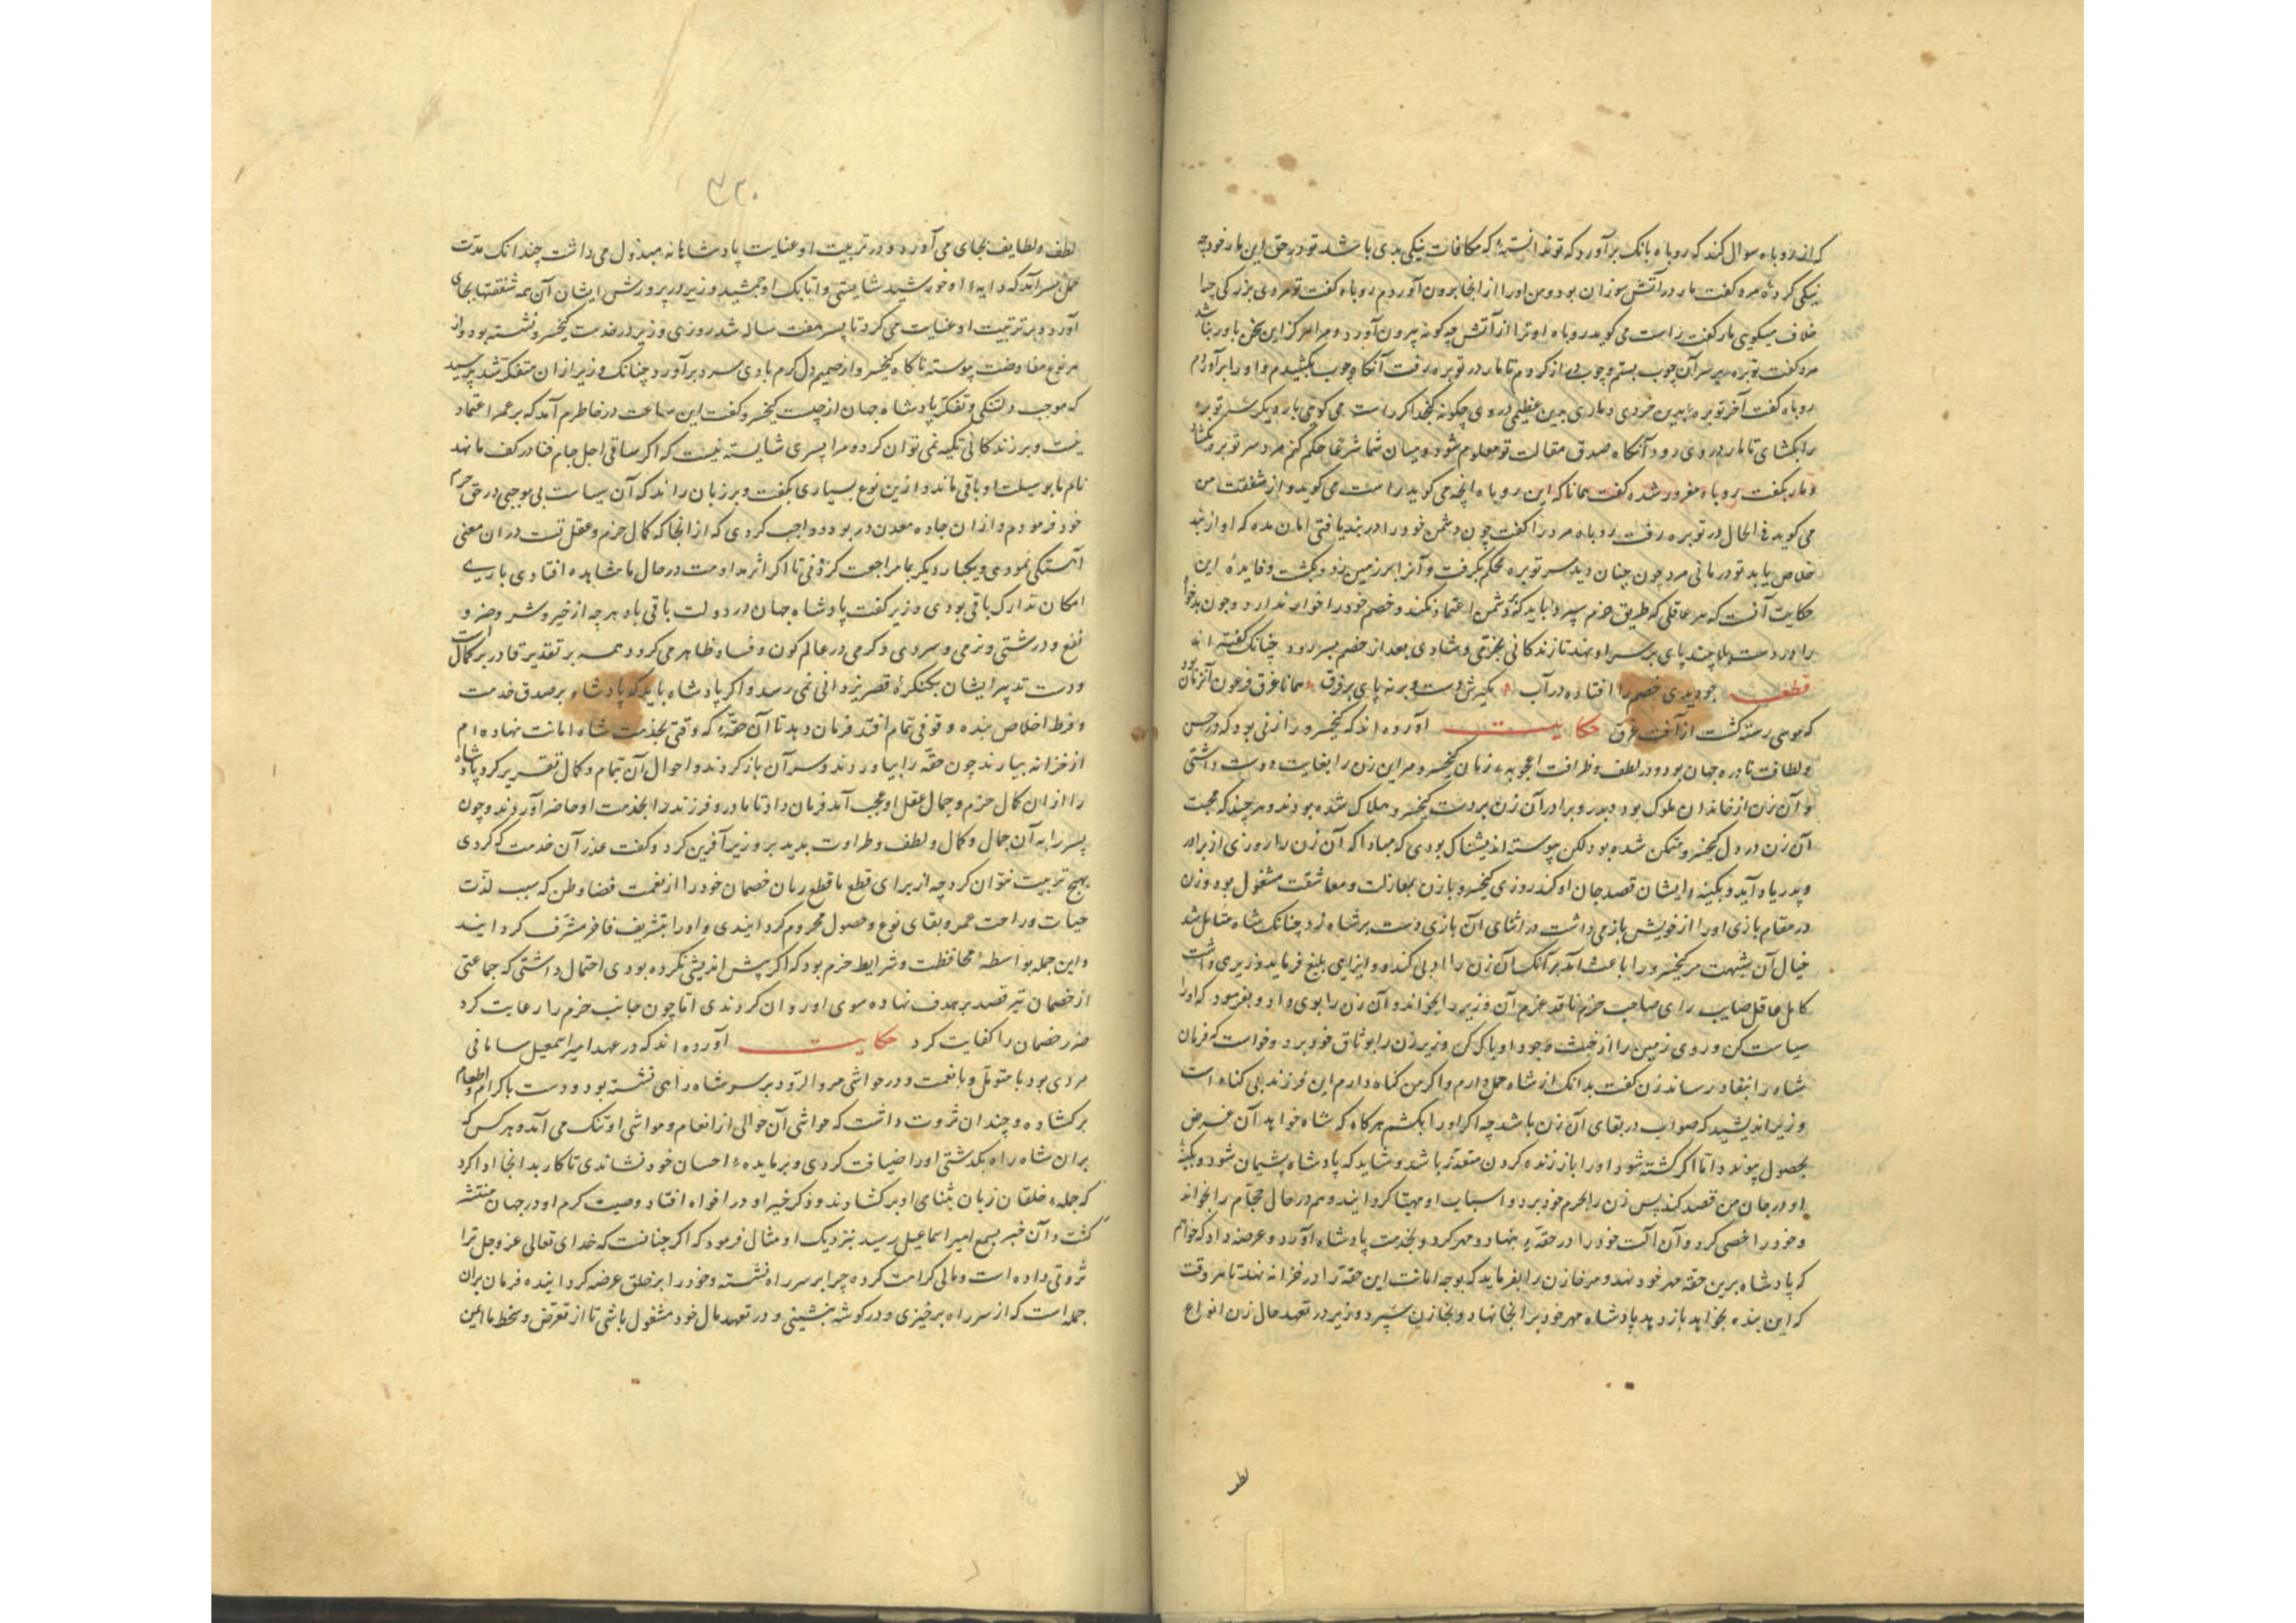 که از روباه سوال کند که روباه بانک برآورد که تو ندانسته‌ٔ که مکافات نیکی بدی باشد تو در حق این مار خود چه
نیکی کردهٔ مرد کفت مار در آتش سوزان بود و من او را از انجا برون آوردم روباه کفت تو مردی بزرکی چرا
خلاف میکویی مار کفت راست می کوید روباه او ترا از آتش چه کونه بیرون آورد و مرا هرکز این سخن باور نباشد
مرد کفت توبره بر سر آن چوب بستم و چوب دراز کردم تا مار در توبره رفت آنکاه چوب بکشیدم و او را برآوردم
روباه کفت آخر توبرهٔ بدین خردی و ماری بدین عظیمی در وی چکونه کنجد اکر راست می کویی بار دیکر سر توبره
را بکشای تا مار در وی رود آنکاه صدق مقالت تو معلوم شود و میان شما شرعا حکم کنم مرد سر توبره بکشاد
و مار بکفت روباه مغرور شده کفت همانا که این روباه انچه می کوید راست می کوید و از شفقت من
می کوید فی الحال در توبره رفت روباه مرد را کفت چون دشمن خود را در بند یافتی امان مده که او از بند
خلاص یابد تو در مانی مرد چون چنان دید سر توبره محکم بکرفت و آنرا بر زمین زد و بکشت و فایدهٔ این
حکایت آنست که هر عاقلی که طریق حزم سپرد باید که بر دشمن اعتماد نکند و خصم خود را خوار ندارد و چون بدخواه
را در دست بلا چند پای بر سر او نهد تا زندکانی بخرمی و شادی بعد از خصم بسر رود چنانک کفته اند
قطعه جو دیدی خصم را افتاده در آب بکیرش دست و برنه پای بر فرق همانا غرق فرعون آنزمان بود
که موسی رسته کشت از آفت غرق حکایت آورده اند که کیخسرو را زنی بود که در حسن
و لطافت نادره جهان بود و در لطف و ظرافت اعجوبهٔ زمان کیخسرو مر این زن را بغایت دوست داشتی
و آن زن از خاندان ملوک بود و پدر و برادر آن زن بر دست کیخسرو هلاک شده بودند و هر چند که محبت
آن زن در دل کیخسرو متمکن شده بود لکن پیوسته اندیشناک بودی که مبادا که آن زن را روزی از برادر
و پدر یاد آید و بکینهٔ ایشان قصد جان او کند روزی کیخسرو با زن بمغازلت و معاشقت مشغول بود و زن
در مقام بازی او را از خویش باز می داشت در اثنای آن بازی دست بر شاه زد چنانک شاه متامل شد
خیال آن شبهت مر کیخسرو را باعث آمد بر آنک آن زن را ادبی کند و ایذایی بلیغ فرماید وزیری داشت
کامل عاقل صایب رای صاحب حزم ناقد عزم آن وزیر را بخواند و آن زن را بوی داد و بفرمود که او را
سیاست کن و روی زمین را از خبث وجود او پاک کن وزیر زن را بوثاق خود برد و خواست که فرمان
شاه را بنفاذ رساند زن کفت بدانک از شاه حمل دارم و اکر من کناه دارم این فرزند بی کناه است
وزیر اندیشید که صواب در بقای آن زن باشد چه اکر او را بکشم هرکاه که شاه خواهد آن غرض
بحصول پیوندد اما اکر کشته شود او را باز زنده کردن متعذر باشد و شاید که پادشاه پشیمان شود و بکینهٔ
او در جان من قصد کند پس زن را بحرم خود برد و اسباب او مهیا کردانید و هم در حال حجام را بخواند
و خود را خصی کرد و آن آلت خود را در حقهٔ بنهاد و مهر کرد و بخدمت پادشاه آورد و عرضه داد که خواهم
که پادشاه برین حقه مهر خود نهد و مر خازن را بفرماید که بوجه امانت این حقه را در خزانه نهد تا هر وقت
که این بنده بخواهد باز دهد پادشاه مهر خود بر انجا نهاد و بخازن سپرد و وزیر در تعهد حال زن انواع
لطف
۳۲۰
لطف و لطایف بجای می آورد و در تربیت او عنایت پادشاهانه مبذول می داشت چندانک مدت
حمل بسر آمد که دایهٔ او خورشید شایستی و اتابک او جمشید وزیر در پرورش ایشان آن همه شفقتها بجای
آورد و بر تربیت او عنایت می کرد تا پسر هفت ساله شد روزی وزیر در خدمت کیخسرو نشسته بود و از
هر نوع مفاوضت پیوسته ناکاه کیخسرو از صمیم دل کرم بادی سرد برآورد چنانک وزیر از ان متفکر شد پرسید
که موجب دلتنکی و تفکر پادشاه جهان از چیست کیخسرو کفت این ساعت در خاطرم آمد که بر عمر اعتماد
نیست و بر زندکانی تکیه نمی توان کرد و مرا پسری شایسته نیست که اکر ساقی اجل جام فنا در کف ما نهد
نام ما بوسیلت او باقی ماند و ازین نوع بسیاری بکفت و بر زبان راند که آن سیاست بی موجبی در حق حرم
خود فرمودم و از ان جاده معدن در بود و واجب کردی که از انجا که کمال حزم و عقل تست در ان معنی
آهستکی نمودی و یکبار دیکر بما مراجعت کردنی تا اکر اثر مداومت در حال ما مشاهده افتادی باری
امکان تدارک باقی بودی وزیر کفت پادشاه جهان در دولت باقی باد هر چه از خیر و شر و ضر و
نفع و درشتی و نرمی و سردی و کرمی در عالم کون و فساد ظاهر می کردد همه بر تقدیر قادر بر کمال است
و دست تدبیر ایشان بکنکرهٔ قصر یزدانی نمی رسد و اکر پادشاه باید که پادشاه بر صدق خدمت
و فرط اخلاص بنده وقوفی تمام افتد فرمان دهد تا آن حقهٔ که وقتی بخدمت شاه امانت نهاده ام
از خزانه بیارند چون حقه را بیاوردند و سر آن باز کردند و احوال آن تمام و کمال تقریر کرد پادشاه
را از ان کمال حزم و جمال عقل او عجب آمد فرمان داد تا مادر و فرزند را بخدمت او حاضر آوردند و چون
پسر را به آن جمال و کمال و لطف و طراوت بدید بر وزیر آفرین کرد و کفت عذر آن خدمت که کردی
بهیچ تربیت نتوان کرد چه از برای قطع ما قطع زبان خصمان خود را از نعمت قضا وطن که سبب لذت
حیات و راحت عمر و بقای نوع و حصول محروم کردانیدی و او را بتشریف فاخر مشرف کردانید
و این جمله بواسطهٔ محافظت و شرایط حزم بود که اکر پیش اندیشی نکرده بودی احتمال داشتی که جماعتی
از خصمان تیر قصد بر هدف نهاده سوی او روان کردندی اما چون جانب حزم را رعایت کرد
ضرر خصمان را کفایت کرد حکایت آورده اند که در عهد امیر اسمعیل سامانی
مردی بود با متول و با نعمت و در حواشی مرو الرود بر سر شاه راهی نشسته بود و دست باکرام و اطعام
برکشاده و چندان ثروت داشت که حواشی آن حوالی از انعام و مواشی او تنک می آمد و هر کس که
بران شاه راه بکذشتی او را ضیافت کردی و بر مایدهٔ احسان خود نشاندی تا کار بدانجا ادا کرد
که جملهٔ خلقان زبان بثنای او برکشادند و ذکر خیر او در افواه افتاد و صیت کرم او در جهان منتشر
کشت و آن خبر بسمع امیر اسماعیل رسید بنزدیک او مثال فرمود که اکر چنانست که خدای تعالی عز و جل ترا
ثروتی داده است و مالی کرامت کرده چرا بر سر راه نشسته و خود را بر خلق عرضه کردانیده فرمان بران
جمله است که از سر راه برخیزی و در کوشه بنشینی و در تعهد مال خود مشغول باشی تا از تعرض و سخط ما ایمن